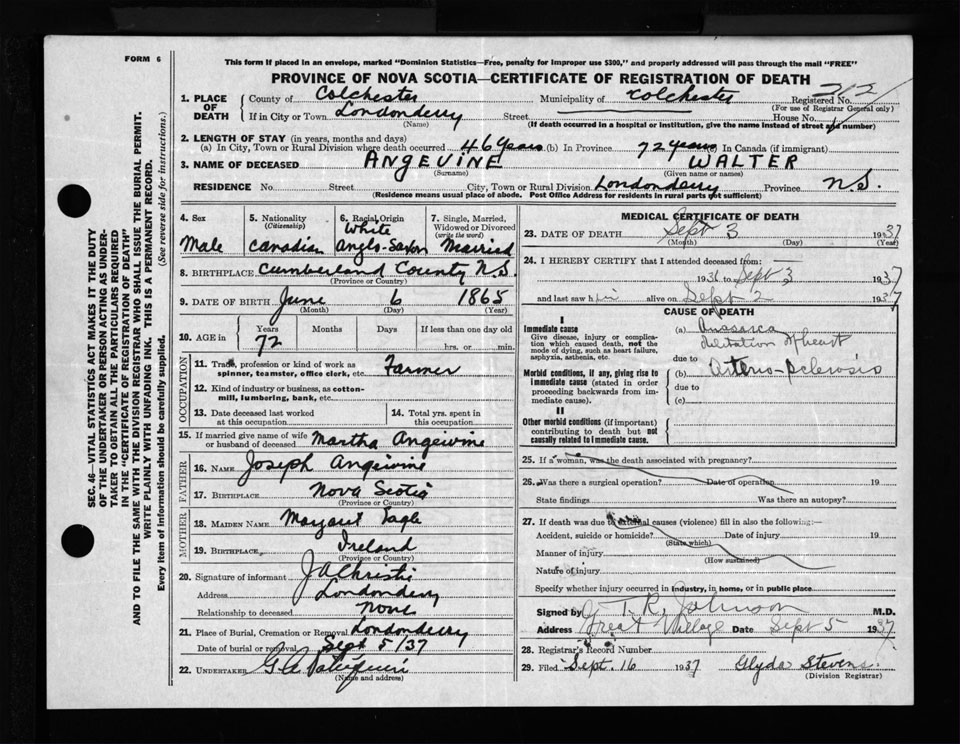 FORM 6
This form if placed in an envelope, marked "Dominion Statistics—Free, penalty for improper use $300," and properly addressed will pass through the mail "FREE"
PROVINCE OF NOVA SCOTIA—CERTIFICATE OF REGISTRATION OF DEATH
SEC. 46—VITAL STATISTICS ACT MAKES IT THE DUTY
OF THE UNDERTAKER OR PERSON ACTING AS UNDER-
TAKER TO OBTAIN ALL THE PARTICULARS REQUIRED
IN THE "CERTIFICATE OF REGISTRATION OF DEATH"
AND TO FILE THE SAME WITH THE DIVISION REGISTRAR WHO SHALL ISSUE THE BURIAL PERMIT.
WRITE PLAINLY WITH UNFADING INK. THIS IS A PERMANENT RECORD.
Every item of information should be carefully supplied. (See reverse side for instructions.)
1. PLACE OF DEATH County of Colchester Municipality of Colchester Registered No. 212
(For use of Registrar General only)
If in City or Town Londonderry Street House No.
(Name) (If death occurred in a hospital or institution, give the name instead of street and number)
2. LENGTH OF STAY (in years, months and days)
(a) In City, Town or Rural Division where death occurred 46 years (b) In Province 72 years (c) In Canada (if immigrant)
3. NAME OF DECEASED ANGEVINE WALTER
(Surname) (Given name or names)
RESIDENCE No. Street City, Town or Rural Division Londonderry Province N.S.
(Residence means usual place of abode. Post Office Address for Residents in rural parts not sufficient)
4. Sex Male
5. Nationality (Citizenship) Canadian
6. Racial Origin White Anglo-Saxon
7. Single, Married, Widowed or Divorced (write the word) Married
8. BIRTHPLACE Cumberland County N.S.
(Province or Country)
9. DATE OF BIRTH June 6 1865
(Month) (Day) (Year)
10. AGE in Years 72 Months Days If less than one day old hrs. or min.
OCCUPATION
11. Trade, profession or kind of work as spinner, teamster, office clerk, etc. Farmer
12. Kind of industry or business, as cotton-mill, lumbering, bank, etc.
13. Date deceased last worked at this occupation
14. Total yrs. spent in this occupation
15. If married give name of wife or husband of deceased Martha Angevine
FATHER
16. NAME Joseph Angevine
17. BIRTHPLACE Nova Scotia
(Province or Country)
MOTHER
18. MAIDEN NAME Margaret
19. BIRTHPLACE Ireland
(Province or Country)
20. Signature of informant J A Christie
Address Londonderry
Relationship to deceased None
21. Place of Burial, Cremation or Removal Londonderry
Date of burial or removal Sept 5/37
22. UNDERTAKER G A
(Name and address)
MEDICAL CERTIFICATE OF DEATH
23. DATE OF DEATH Sept 3 1937
(Month) (Day) (Year)
24. I HEREBY CERTIFY that I attended deceased from:
1936 to Sept 3 1937
and last saw him alive on Sept 2 1937
CAUSE OF DEATH
I
Immediate cause
Give disease, injury or complication which caused death, not the mode of dying, such as heart failure, asphyxia, asthenia, etc.
(a) Anasarca
dilitation of heart
due to
Morbid conditions, if any, giving rise to immediate cause (stated in order proceeding backwards from immediate cause).
(b) Arterio-Sclerosis
due to
(c)
II
Other morbid conditions (if important) contributing to death but not causally related to immediate cause.
25. If a woman, was the death associated with pregnancy?
26. Was there a surgical operation? Date of operation 19
State findings Was there an autopsy?
27. If death was due to external causes (violence) fill in also the following:—
Accident, suicide or homicide? Date of injury 19
(State which)
Manner of injury
(How sustained)
Nature of injury
Specify whether injury occurred in industry, in home, or in public place
Signed by T. R. Johnson M.D.
Address Great Village Date Sept 5 1937
28. Registrar's Record Number
29. Filed Sept. 16 1937 Glyda Stevens
(Division Registrar)